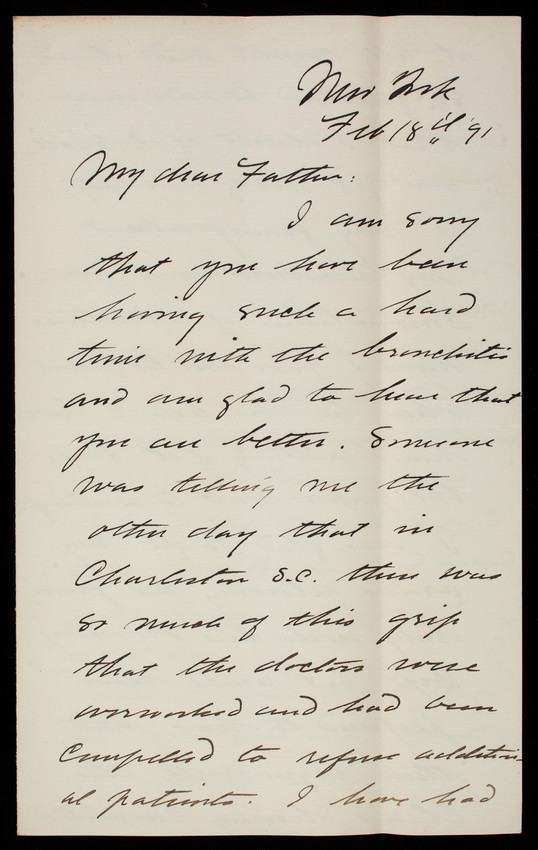 New York
Feb 18th '91
My dear Father:
I am sorry
that you have been
having such a hard
time with the bronchitis
and am glad to hear that
you are better. Someone
was telling me the
other day that in
Charleston S.C. there was
so much of this grip
that the doctors were
overworked and had been
compelled to refuse addition-
al patients. I have had